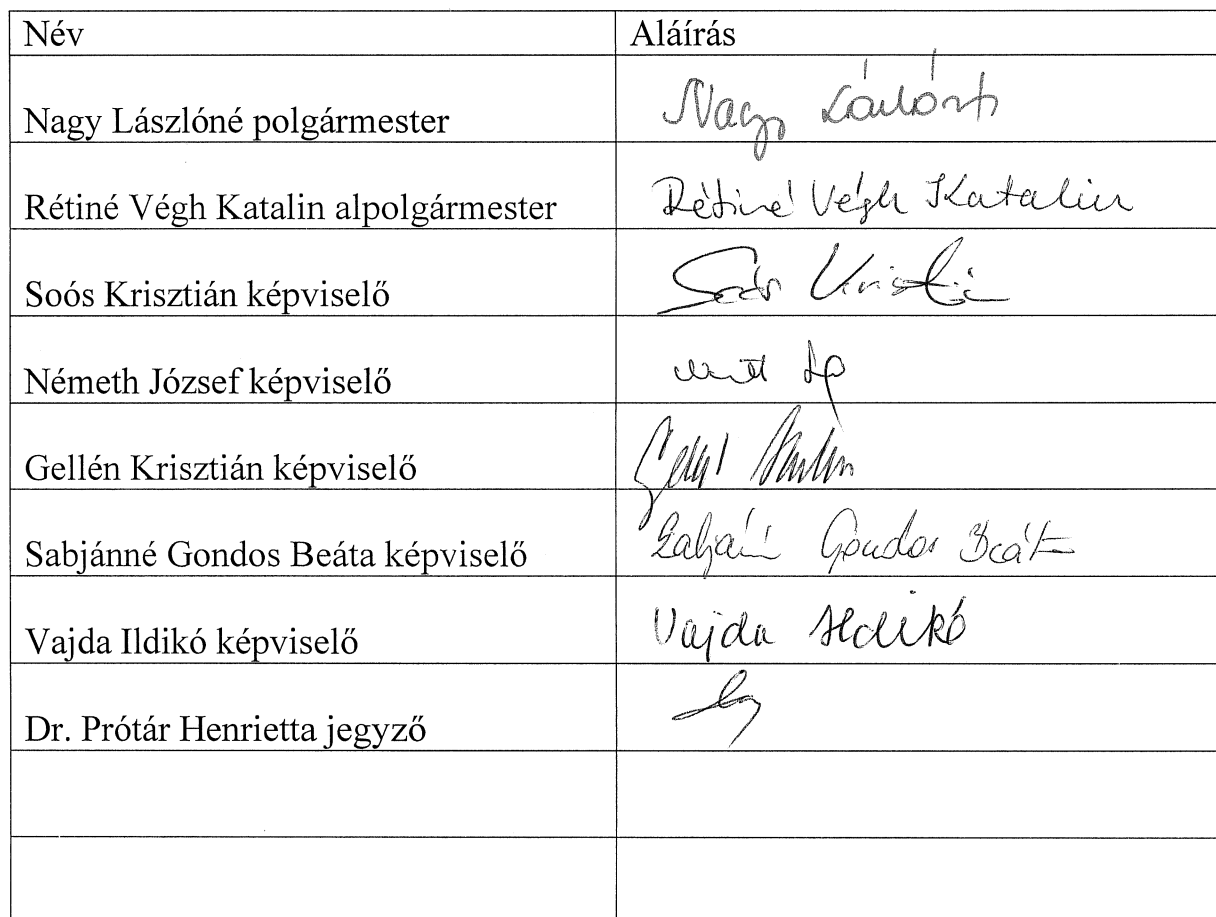 Név Aláírás
Nagy Lászlóné polgármester Nagy Lászlóné
Rétiné Végh Katalin alpolgármester Rétiné Végh Katalin
Soós Krisztián képviselő Soós
Németh József képviselő
Gellén Krisztián képviselő
Sabjánné Gondos Beáta képviselő Sabjánné Gondos Beáta
Vajda Ildikó képviselő Vajda Ildikó
Dr. Prótár Henrietta jegyző